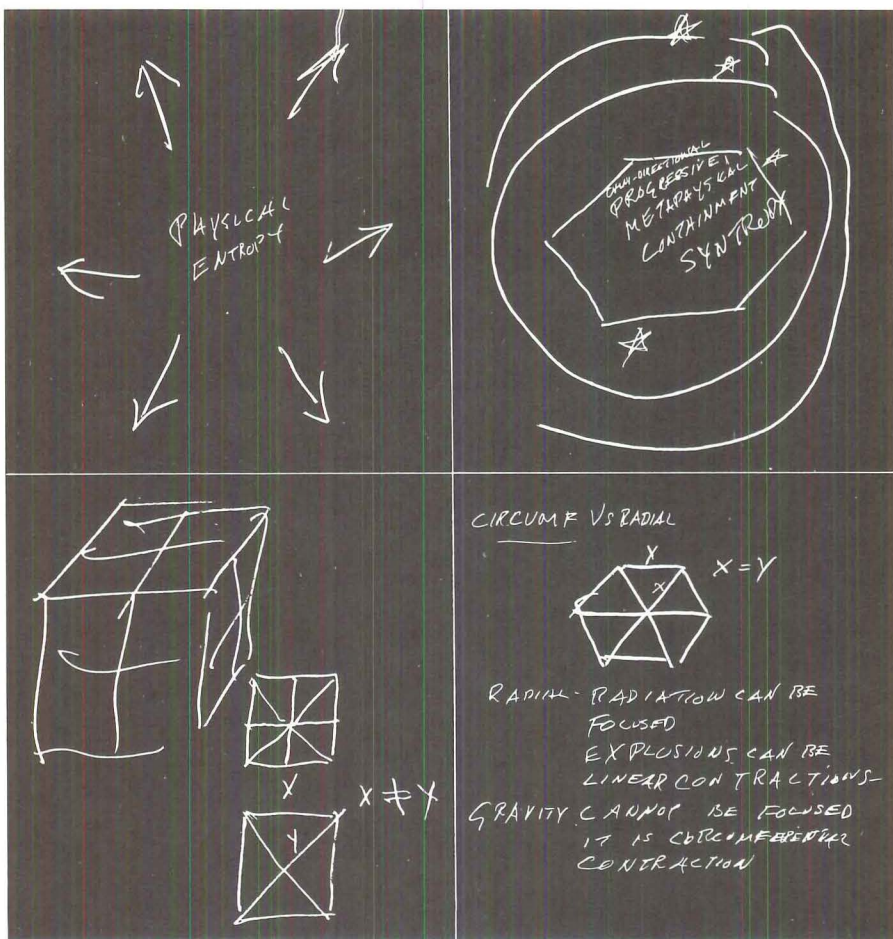 PHYSICAL
ENTROPY
OMNI-DIRECTIONAL
PROGRESSIVE,
METAPHYSICAL
CONTAINMENT
SYNTROPY
X
Y
X ≠ Y
CIRCUMF VS RADIAL
X
X
X = Y
RADIAL - RADIATION CAN BE
FOCUSED
EXPLOSIONS CAN BE
LINEAR CONTRACTIONS-
GRAVITY CANNOT BE FOCUSED
IT IS CIRCUMFERENTIAL
CONTRACTION